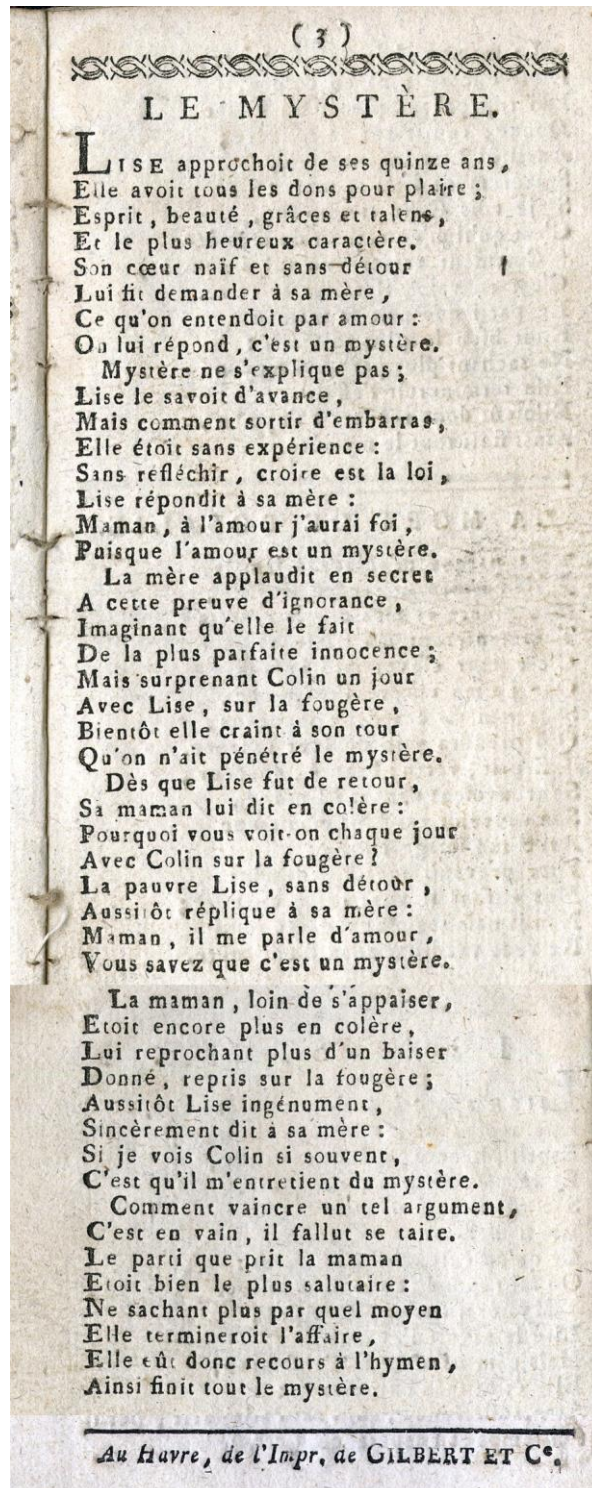 ( 3 )
LE MYSTÈRE.
LISE approchoit de ses quinze ans,
Elle avoit tous les dons pour plaire ;
Esprit, beauté, grâces et talens,
Et le plus heureux caractère.
Son cœur naïf et sans détour
Lui fit demander à sa mère,
Ce qu'on entendoit par amour :
On lui répond, c'est un mystère.
Mystère ne s'explique pas ;
Lise le savoit d'avance,
Mais comment sortir d'embarras,
Elle étoit sans expérience :
Sans refléchir, croire est la loi,
Lise répondit à sa mère :
Maman, à l'amour j'aurai foi,
Puisque l'amour est un mystère.
La mère applaudit en secret
A cette preuve d'ignorance,
Imaginant qu'elle le fait
De la plus parfaite innocence ;
Mais surprenant Colin un jour
Avec Lise, sur la fougère,
Bientôt elle craint à son tour
Qu'on n'ait pénétré le mystère.
Dès que Lise fut de retour,
Sa maman lui dit en colère :
Pourquoi vous voit-on chaque jour
Avec Colin sur la fougère ?
La pauvre Lise, sans détour,
Aussitôt réplique à sa mère :
Maman, il me parle d'amour,
Vous savez que c'est un mystère.
La maman, loin de s'appaiser,
Etoit encore plus en colère,
Lui reprochant plus d'un baiser
Donné, repris sur la fougère ;
Aussitôt Lise ingénument,
Sincèrement dit à sa mère :
Si je vois Colin si souvent,
C'est qu'il m'entretient du mystère.
Comment vaincre un tel argument,
C'est en vain, il fallut se taire.
Le parti que prit la maman
Etoit bien le plus salutaire :
Ne sachant plus par quel moyen
Elle termineroit l'affaire,
Elle eût donc recours à l'hymen,
Ainsi finit tout le mystère.
Au Havre, de l'Impr. de GILBERT ET Cᵉ.